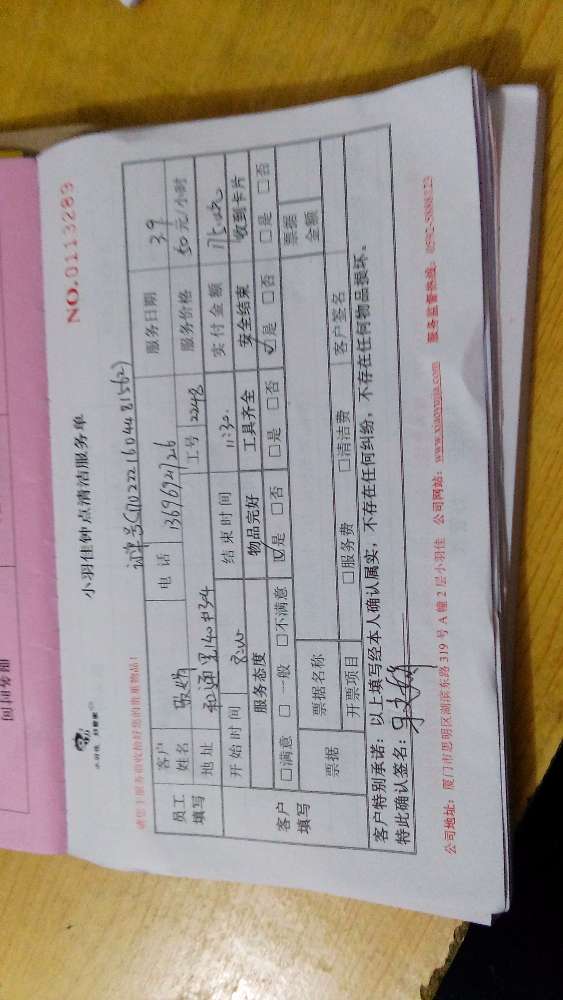 小羽佳钟点清洁服务单
NO.0113289
员工填写
客户姓名
电话
13696921726
服务日期
3.9
地址
工号
2248
服务价格
50元/小时
开始时间
8:00
结束时间
11:30
实付金额
客户填写
服务态度
物品完好
工具齐全
安全结束
收到卡片
□满意 □一般 □不满意
☑是 □否
□是 □否
☑是 □否
□是 □否
票据
票据名称
票据金额
开票项目
□服务费
□清洁费
客户签名
客户特别承诺：以上填写经本人确认属实，不存在任何纠纷，不存在任何物品损坏。
特此确认签名：
公司地址：厦门市思明区湖滨东路319号A幢2层小羽佳 公司网站：www.xiaoyujia.com 服务监督热线：